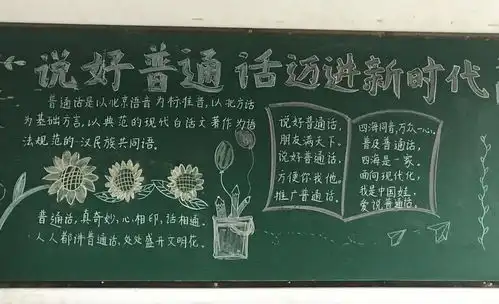 说好普通话迈进新时代
普通话是以北京语音为标准音,以北方话
为基础方言,以典范的现代白话文著作为语
法规范的汉民族共同语。
普通话,真奇妙,心相印,话相通。
人人都讲普通话,处处盛开文明花。
说好普通话,
朋友满天下。
说好普通话,
方便你我他。
推广普通话,
四海同音,万众一心。
普及普通话,
四海是一家。
面向现代化,
我是中国娃。
爱说普通话。